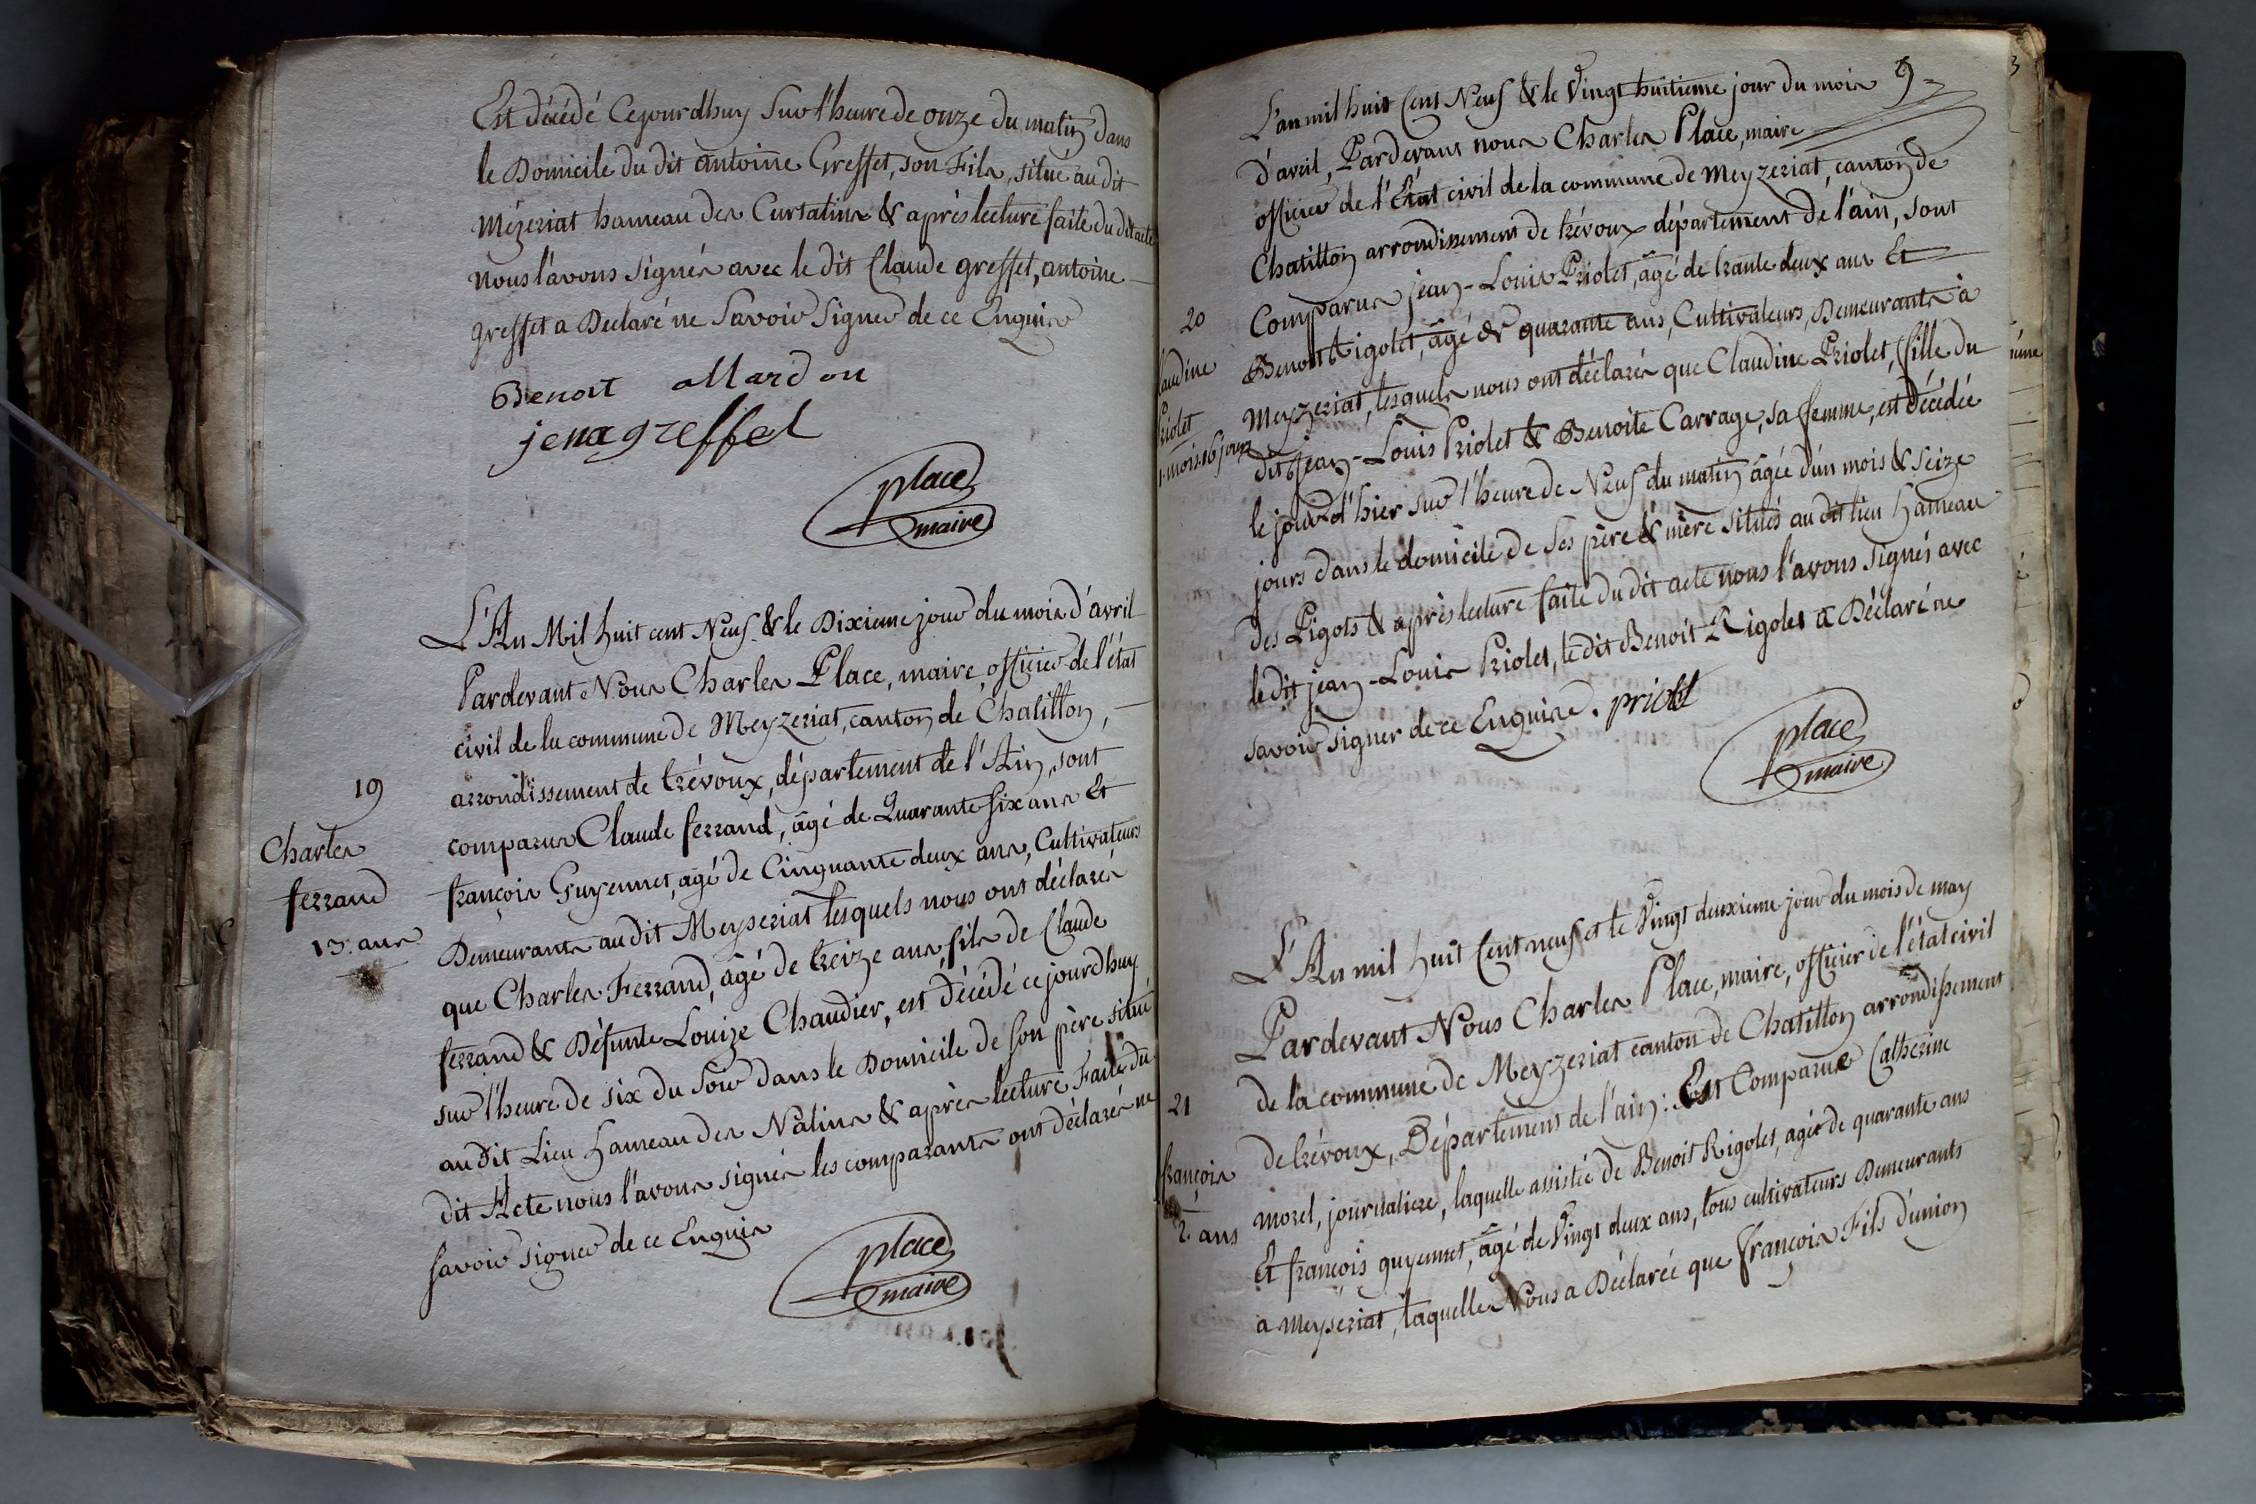 Est décédé Cejourdhuy Sur l'heure de onze du matin dans
le Domicile du dit antoine Greffet, son Fils, situé au dit
Mézeriat hameau des Curtalins & après lecture faite du dit acte
nous l'avons signés avec le dit Claude greffet, antoine
greffet a Declaré ne Savoir Signer de ce Enquis
Benoit allardon
jena greffet
place
maire
L'An Mil huit cent Neuf & le Dixieme jour du mois d'avril
Pardevant Nous Charles Place, maire, officier de l'état
civil de la commune de Meyzeriat, canton de Chatillon,
arrondissement de trévoux, département de l'Ain, sont
19
comparus Claude ferrand, âgé de Quarante six ans Et
Charles
françois Guyennet, agé de Cinquante deux ans, Cultivateurs
ferrand
Demeurants au dit Meyseriat lesquels nous ont déclarés
13. ans
que Charles Ferrand, âgé de treize ans, fils de Claude
ferrand & Défunte Louize Chaudier, est décédé cejourdhuy
sur l'heure de six du Soir dans le Domicile de son père situé
au dit Lieu hameau des Nalins & après lecture Faite du
dit Acte nous l'avons signés les comparants ont déclarés ne
savoir signer de ce Enquis
place
maire
L'an mil huit Cent Neuf & le Vingt huitieme jour du mois
9
d'avril, Pardevant nous Charles Place, maire
officier de l'État civil de la commune de Meyzeriat, canton de
Chatillon arrondissement de trévoux département de l'ain, sont
20
Comparus jean-Louis Priolet, âgé de trante deux ans Et
Benoit Rigolet, âgé de quarante ans, Cultivateurs, Demeurants à
laudine
Meyzeriat, lesquels nous ont déclarés que Claudine Priolet, fille du
riolet
dit jean-Louis Priolet & Benoite Carrage, sa femme, est décédée
1. mois 16 jours
le jour d'hier sur l'heure de Neuf du matin âgée d'un mois & seize
jours dans le domicile de ses père & mère situés au dit lieu hameau
des Pigots & après lecture faite du dit acte nous l'avons signés avec
le dit jean-Louis Priolet, le dit Benoit Rigolet a Déclaré ne
savoir signer de ce Enquise. priolet
place
maire
L'An mil huit Cent neuf et le Vingt deuxieme jour du mois de may
Pardevant Nous Charles Place, maire, officier de l'état civil
de la commune de Meyzeriat canton de Chatillon arrondissement
21
de trévoux, Département de l'ain: Est Comparue Catherine
françois
morel, journaliere, laquelle assistée de Benoit Rigolet, agée de quarante ans
2. ans
Et françois guyennet, âgé de Vingt deux ans, tous cultivateurs Demeurants
a meyseriat, laquelle Nous a Déclarée que françois Fils d'union